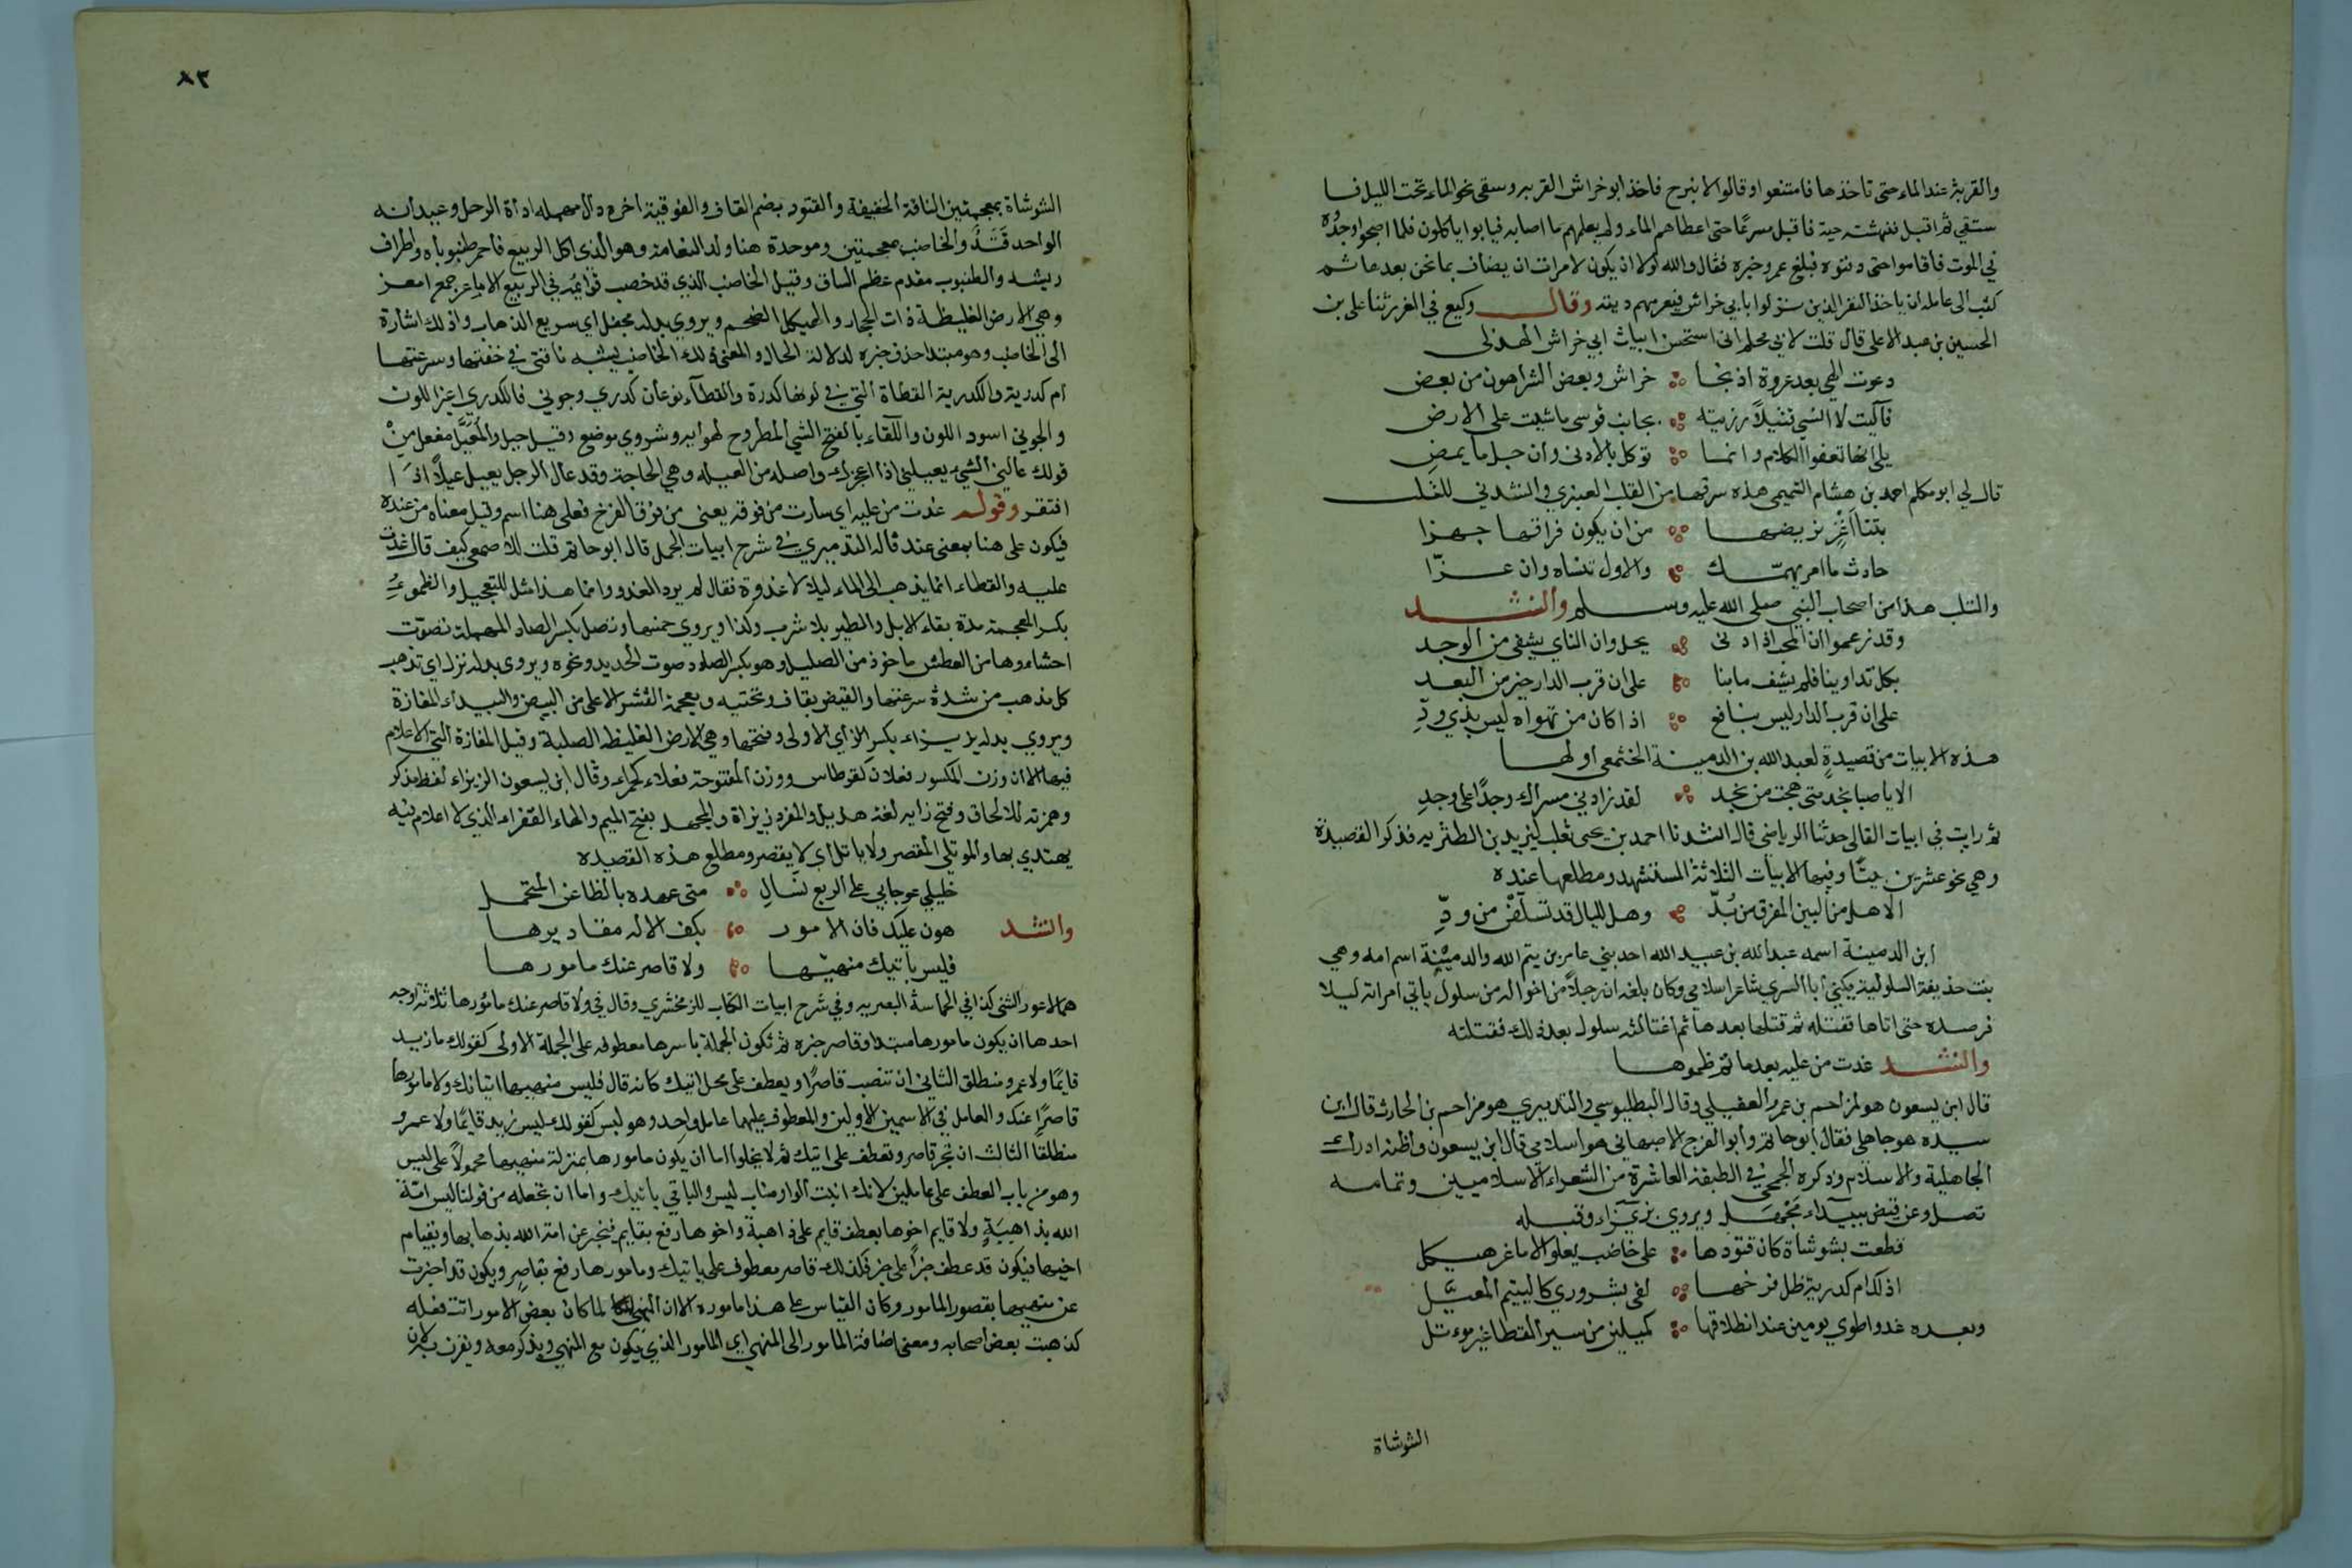 والقربة عند الماء حتى تاخذها فامتنعوا وقالوا لا نبرح فاخذ ابو خراش القربة وسقى نحو الماء تحت الليل فا
ستقى ثم اقبل فنهشته حية فاقبل مسرعا حتى اعطاهم الماء ولم يعلمهم ما اصابه فباتوا ياكلون فلما اصبحوا وجدوه
في الموت فاقاموا حتى دفنوه فبلغ عمر خبره فقال والله لولا ان يكون لامرات ان يضاف بمانحن بعدها ثم
كتب الى عامله ان ياخذ النفر الذين نزلوا بابي خراش فيغرمهم ديته وقال وكيع في الغرر ثنا على بن
الحسين بن عبد الاعلى قال قلت لابي محلم انى استحسن ابيات ابي خراش الهذلى
دعوت الهي بعد عروة اذ نجا خراش وبعض الشر اهون من بعض
فآليت لا انسى قتيلاً رزيته بجانب قوسى ما مشيت على الارض
بلى انها تعفوا الكلام وانما نوكل بالادنى وان جل ما يمضِ
قال لي ابو محلم احمد بن هشام التميمى هذه سرقها من القلب العنبري وانشدني للقلب
بتنا من ان يكون فراقها جهزا
حادث ما امر يهمّك والاول تنساه وان عزّا
والتلب هذا من اصحاب النبي صلى الله عليه وسلم وانشد
وقد زعموا ان المحب اذا دنى يمل وان الناي يشفى من الوجد
بكل تداوينا فلم يشف ما بنا على ان قرب الدار خير من البعد
على ان قرب الدار ليس بنافع اذا كان من تهواه ليس بذي ودّ
هذه الابيات من قصيدةٍ لعبد الله بن الدمينة الخثعمى اولها
الا يا صبا نجد متى هجت من نجد لقد زادني مسراك وجدًا على وجدِ
ثم رايت في ابيات القالى حدثنا الرياضى قال انشدنا احمد بن يحيى ثعلب ليزيد بن الطثريه فذكر القصيدة
وهي نحو عشرين بيتًا وفيها الابيات الثلاثة المستشهد ومطلعها عنده
الا هل من البين المفرق من بُدّ وهل لليال قد تسلفن من ودِّ
ابن الدمينة اسمه عبد الله بن عبيد الله احد بني عامر بن تيم الله والدمينة اسم امه وهي
بنت حذيفة السلولية يكنى أبا السري شاعر اسلامي وكان بلغه ان رجلاً من اخواله من سلول ياتي امراته ليلا
فرصده حتى اتاها فقتله ثم قتلها بعدها ثم اغتالته سلول بعد ذلك فقتلته
وانشد غدت من عليه بعد ما تم ظموها
قال ابن يسعون هو لمزاحم بن عمرو العقيلي وقال البطليوسي والتدميري هو مزاحم بن الحارث قال ابن
سيده هو جاهلي فقال ابو حاتم وابو الفرج الاصبهاني هو اسلامي قال ابن يسعون واظنه ادرك
الجاهلية والاسلام وذكره الجمحي في الطبقة العاشرة من الشعراء الاسلاميين وتمامه
تصل وعن قيض ببيداء مجهل ويروى بزيزاء وقبله
قطعت بشوشاة كان قتودها على خاضب يعلو الاماعز هيكل
اذلك ام كدرية ظل فرخها لقى بشروري كاليتيم المعيّل
وبعده غدوا طوي يومين عند انطلاقها كميلين من سير القطا غير موءتل
الشوشاة
٨٢
الشوشاة بمعجمتين الناقة الخفيفة والقتود بضم القاف والفوقية اخره دال مهمله اداة الرحل وعيدانه
الواحد قَتَدٌ والخاضب بمعجمتين وموحدة هنا ولد النعامة وهو الذى اكل الربيع فاحمر ظنبوباه واطراف
ريشه والظنبوب مقدم عظم الساق وقيل الخاضب الذي قد خضب قوائمه في الربيع الاماعز جمع امعز
وهي الارض الغليظة ذات الحجار والهيكل الضخم ويروي بدله مجفل اي سريع الذهاب واذلك اشارة
الى الخاضب وهو مبتدا حذف خبره لدلالة الحال والمعنى اذلك الخاضب يشبه ناقتى في خفتها وسرعتها
ام كدرية والكدرية القطاة التي في لونها كدرة والقطاء نوعان كدري وجوني فالكدري اغبر اللون
والجوني اسود اللون واللقاء بالفتح الشي المطروح لهوانه وشروي موضع وقيل جبل والمعيَّل مفعل مِنْ
قولك عالني الشيء يعيلني اذا اعجزك واصله من العيله وهي الحاجة وقد عال الرجل يعيل عيلاً اذا
افتقر وقوله غدت من عليه اي سارت من فوقه يعنى من فوق الفرخ فعلى هنا اسم وقيل معناه من عنده
فيكون على هنا بمعنى عند قاله التدميري في شرح ابيات الجمل قال ابو حاتم قلت للاصمعي كيف قال غدت
عليه والقطاء انما يذهب الى الماء ليلا لا غدوة فقال لم يرد الغدو وانما هذا مثل للتعجيل والظموء
بكسر المعجمة مدة بقاء الابل والطير بلا شرب وكذا ويروي خمسها وتصل بكسر الصاد المهملة تصوّت
احشاوها من العطش ماخوذ من الصليل وهو بكسر الصاد صوت الحديد ونحوه ويروى بدله تزل اي تذهب
كل مذهب من شدة سرعتها والقيض بقاف وتحتيه ومعجمة القشر الاعلى من البيض والبيداء المفازة
ويروي بدله بزيزاء بكسر الزاي الاولى وفتحها وهي الارض الغليظه الصلبة وقيل المفازة التي لا اعلام
فيها الا ان وزن المكسور فعلان كقرطاس ووزن المفتوحة فعلاء كحمراء وقال ابن يسعون الزيزاء لفظ مذكر
وهمزته للالحاق وفتح زايه لغة هذيل والمفرد زيزاة والمجهل بفتح الميم والهاء القفراء الذي لا اعلام فيه
يهتدي بها والموتلي المقصر ولا ياتل اي لا يقصر ومطلع هذه القصيده
خليلي عوجا بي على الربع نسَالِ متى عهده بالظاعن المتحمل
وانشد هون عليك فان الامور بكف الاله مقاديرها
فليس باتيك منهيّها ولا قاصر عنك مامورها
هما لاعور الشنى كذا في الحماسة البصريه وفي شرح ابيات الكتاب للزمخشري وقال في ولا قاصر عنك مامورها ثلاثة اوجه
احدها ان يكون مامورها مبتدا وقاصر خبره ثم تكون الجملة باسرها معطوفه على الجملة الاولى كقولك ما زيد
قايمًا ولا عمرو منطلق الثاني ان تنصب قاصرًا ويعطف على محل اتيك كانه قال فليس منهيها اتيانك ولا مامورها
قاصرًا عنك والعامل في الاسمين الاولين والمعطوف عليهما عامل واحد وهو ليس كقولك ليس زيد قايمًا ولا عمرو
منطلقًا الثالث ان تجر قاصر وتعطف على اتيك ثم لا يخلوا اما ان يكون مامورها بمنزلة منهيها محمولاً على ليس
وهو من باب العطف على عاملين لانك انبت الواو مناب ليس والبا في باتيك واما ان تجعله من قولنا ليس امة
الله بذاهبَةٍ ولا قايم اخوها بعطف قايم على ذاهبة واخوها رفع بقايم فتخبر عن امة الله بذهابها وبقيام
اخيها فيكون قد عطف خبرًا على خبر فلذلك قاصر معطوف على باتيك ومامورها رفع بقاصر ويكون قد اخبرت
عن منهيها بقصور المامور وكان القياس على هذا ماموره الا ان المنهي لما كان بعض الامور انث فعله
كذهبت بعض اصحابه ومعنى اضافة المامور الى المنهي اي المامور الذي يكون مع المنهي ويذكر معه ويقرن